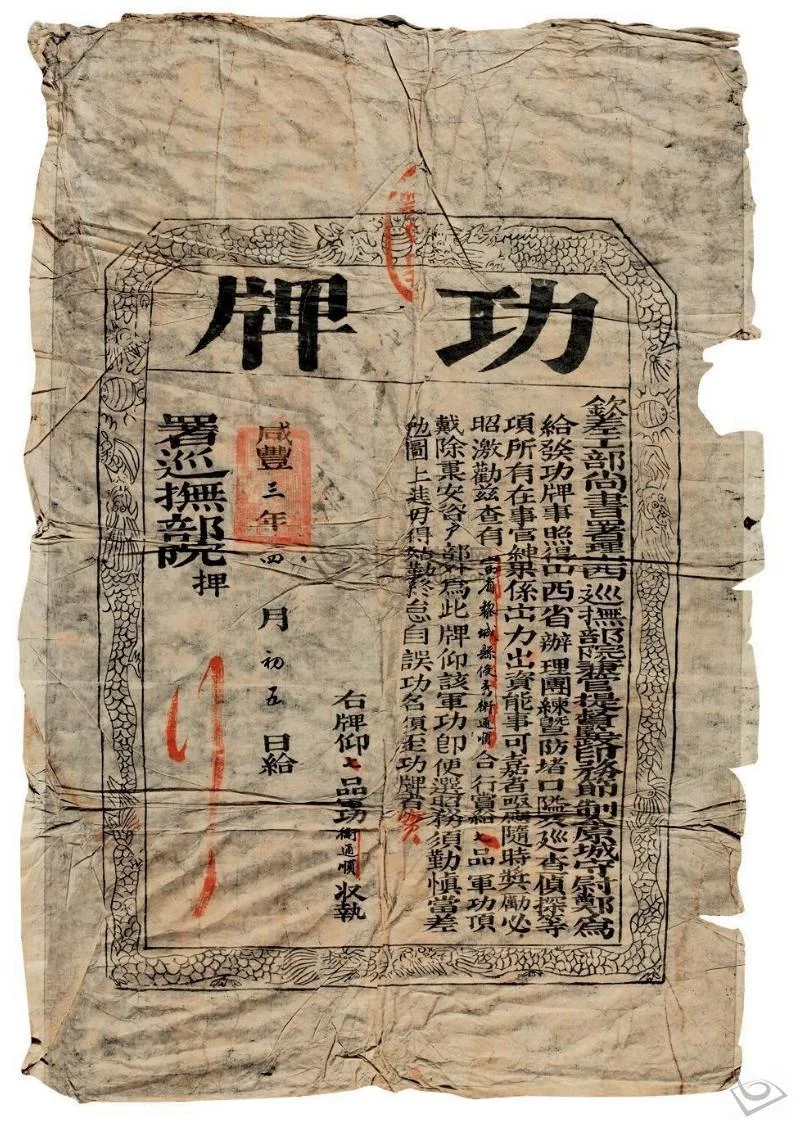 功牌
欽差工部尚書署理山西巡撫部院兼管提督鹽政印務節制太原城守尉鄭爲
給發功牌事照得山西省辦理團練曁防堵口隘及巡查偵探等
項所有在事官紳果係出力出資能事可嘉者亟應隨時奬勵必
昭激勸茲查有 黎城縣俊秀衛通順 合行賞給七品軍功頂
戴除彙案咨戶部外爲此牌仰該軍功卽便遵照務須勤慎當差
勉圖上進毋得始勤終怠自誤功名須至功牌者
右牌仰七品軍功衛通順 收執
咸豐三年四月初五日給
署巡撫部院押